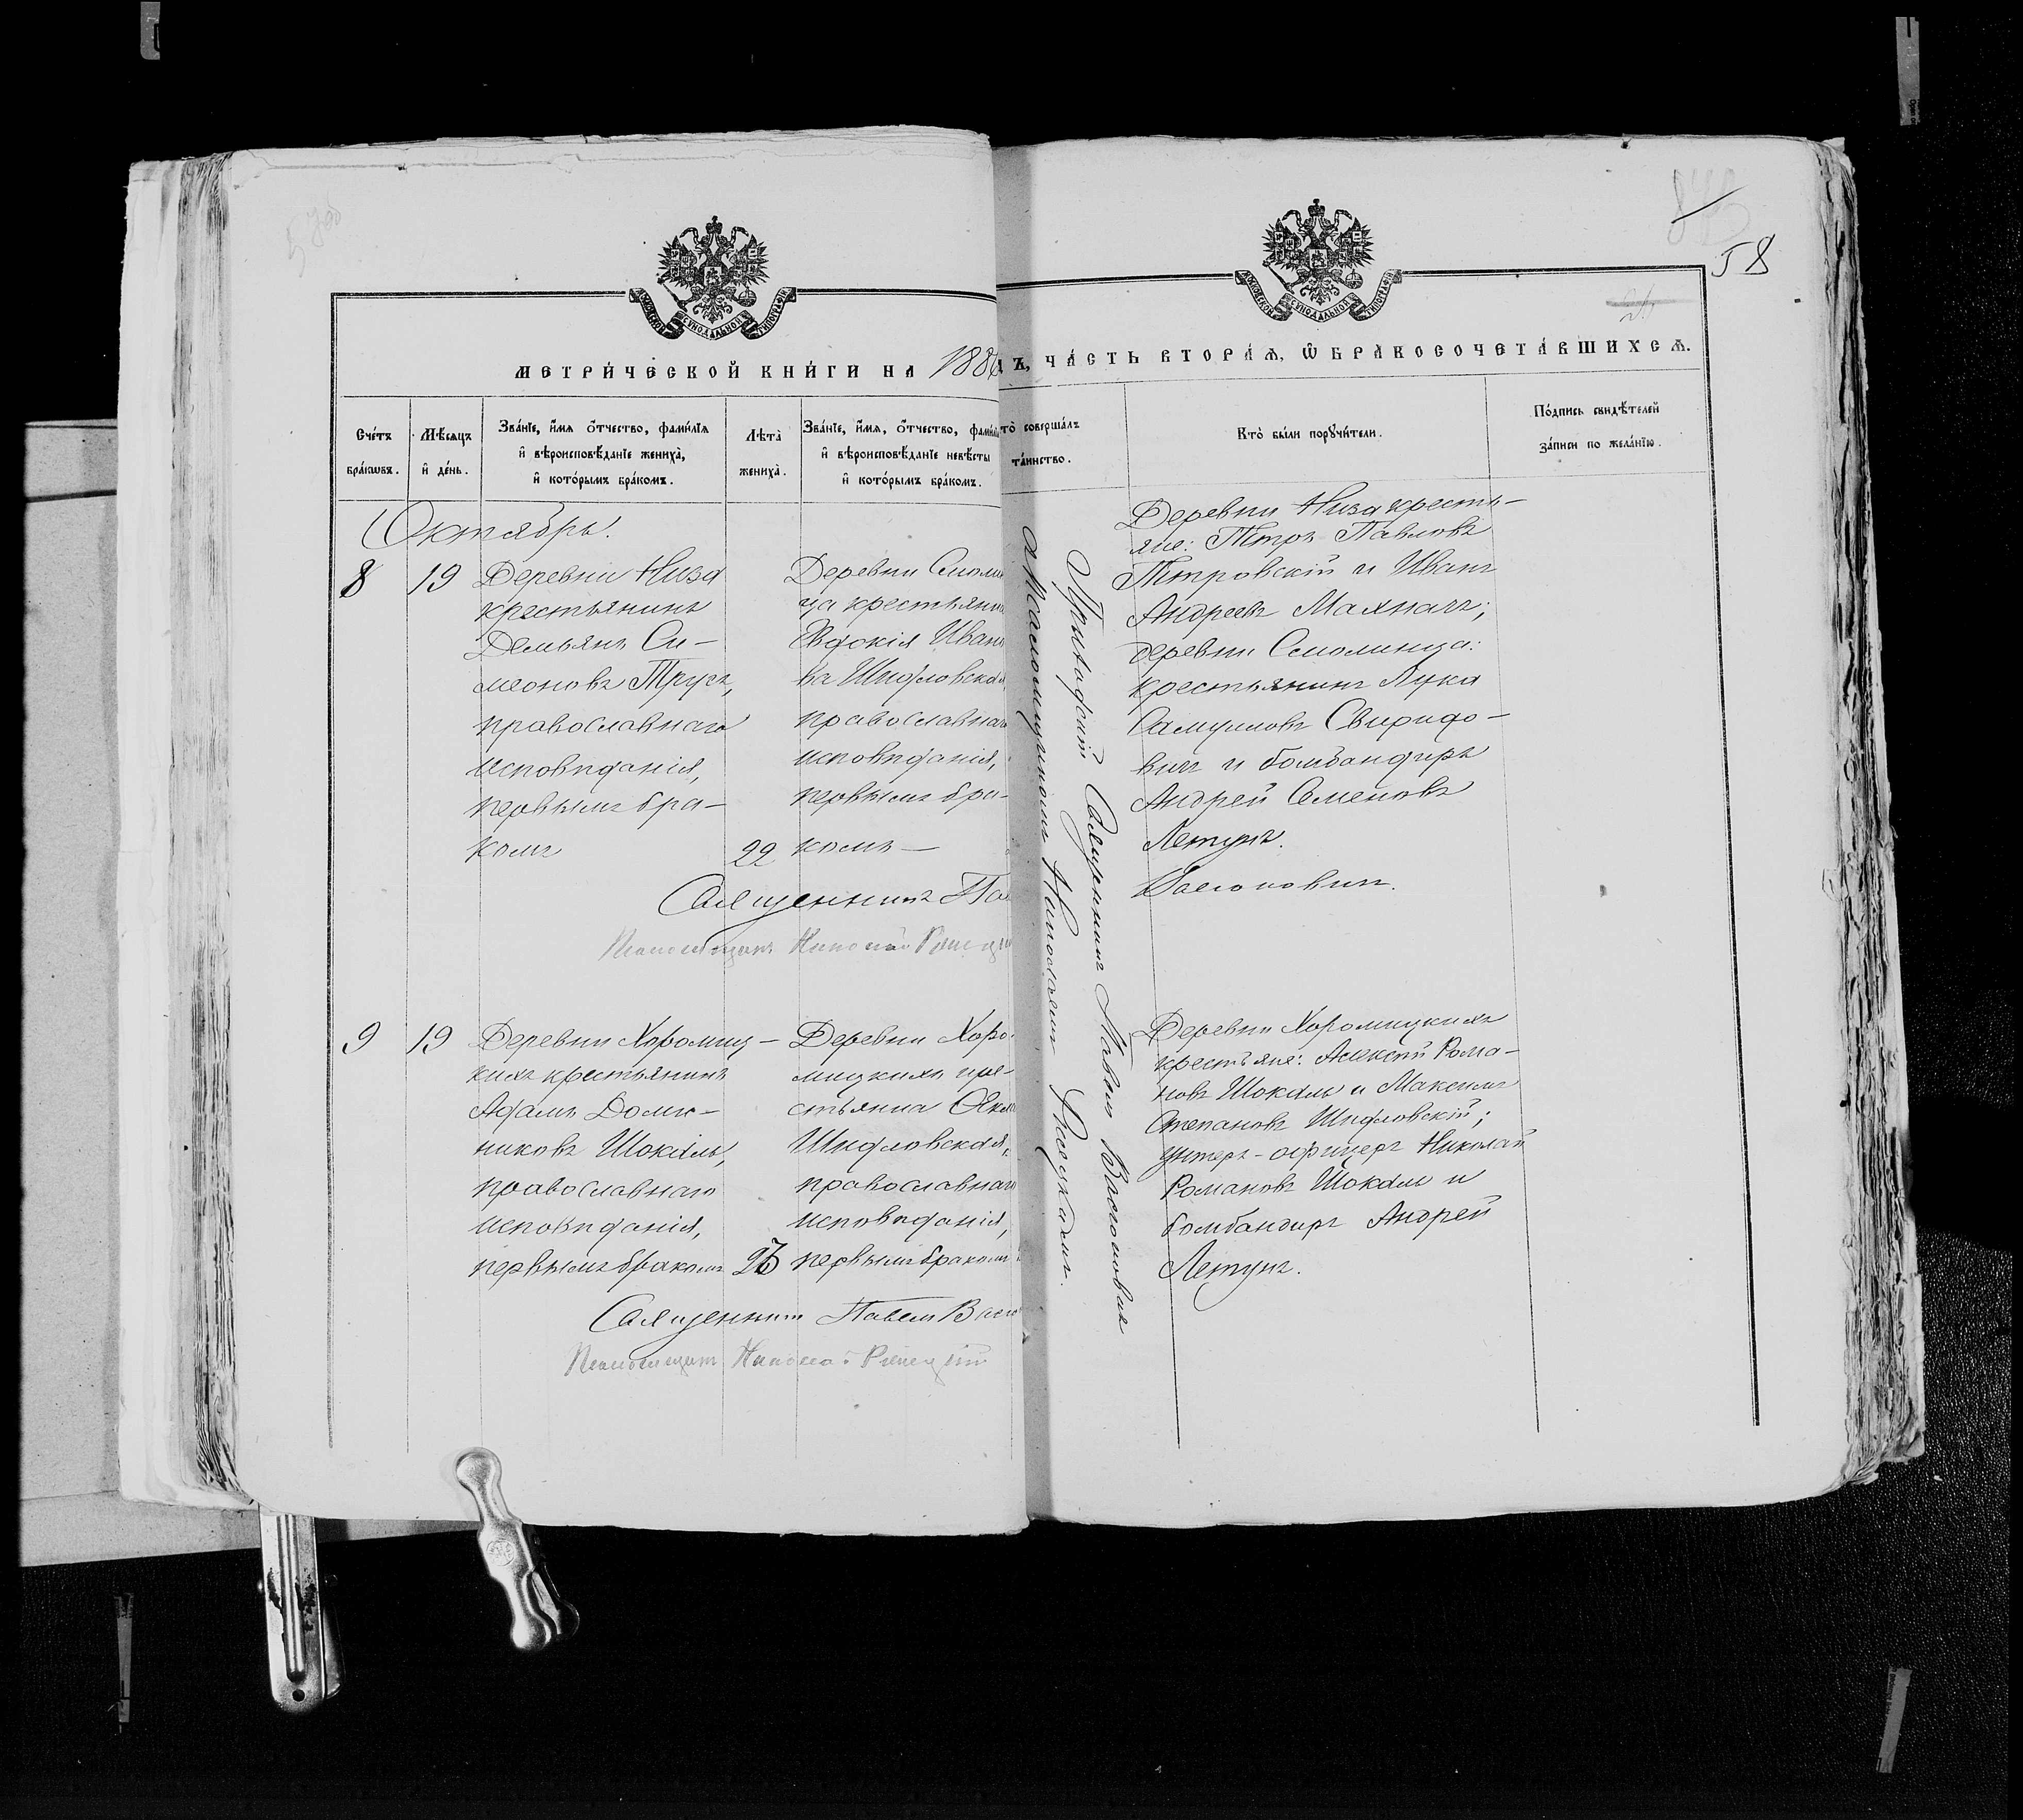 58
МОСКОВСКОЙ СУНОДАЛЬНОЙ ТИПОГРАФІИ
МОСКОВСКОЙ СУНОДАЛЬНОЙ ТИПОГРАФІИ
МЕТРИ́ЧЕСКОЙ КНИ́ГИ НА 1886
Ъ, ЧА́СТЬ ВТОРА́Ѧ, Ѡ БРАКОСОЧЕТА́ВШИХСѦ.
Сче́тъ бра́кѡвъ.
Мѣ́сѧцъ и҆ де́нь.
Зва́нїе, и҆́мѧ ѻ҆́тчество, фами́лїѧ и҆ вѣроисповѣ́данїе жениха̀, и҆ кото́рымъ бра́комъ.
Лѣ́та̀ жениха̀.
Зва́нїе, и҆́мѧ, ѻ҆́тчество, фами́лї и҆ вѣроисповѣ́данїе невѣ́сты и҆ кото́рымъ бра́комъ.
то̀ соверша́лъ та́инство.
Кто̀ бы́ли порꙋчи́тели.
По́дпись свидѣ́телей за́писи по жела́нїю.
Октябрь.
8
19
Деревни Низа
крестьянинъ
Демьянъ Си-
меоновъ Трусъ,
православнаго
исповѣданія,
первымъ бра-
комъ
22
Деревни Смоли
ца крестьян
Евдокія Иван
ва Шидловская
православнаго
исповѣданія,
первымъ бра-
комъ —
Священникъ Па
Псаломщикъ Николай
Приходскій Священникъ Павелъ
съ Псаломщикомъ Николаемъ
Деревни Низа кресть-
яне: Петръ Павловъ
Петровскій и Иванъ
Андреевъ Махначъ;
деревни Смолица:
крестьянинъ Лука
Самуиловъ Свиридо-
вичъ и бомбандиръ
Андрей Семеновъ
Летунъ.
9
19
Деревни Хоромиц-
кихъ крестьянинъ
Адамъ Доми-
никовъ Шокаль,
православнаго
исповѣданія,
первымъ бракомъ
Деревни Хоро-
мицкихъ кре-
стьянка
Шидловская,
православнаго
исповѣданія,
первымъ бракомъ
Священникъ Павелъ
Псаломщикъ Николай
Деревни Хоромицкихъ
крестьяне: Алексѣй Рома-
новъ Шокаль и Максимъ
Степановъ Шидловскій;
унтеръ-офицеръ Николай
Романовъ Шокаль и
бомбандиръ Андрей
Летунъ.